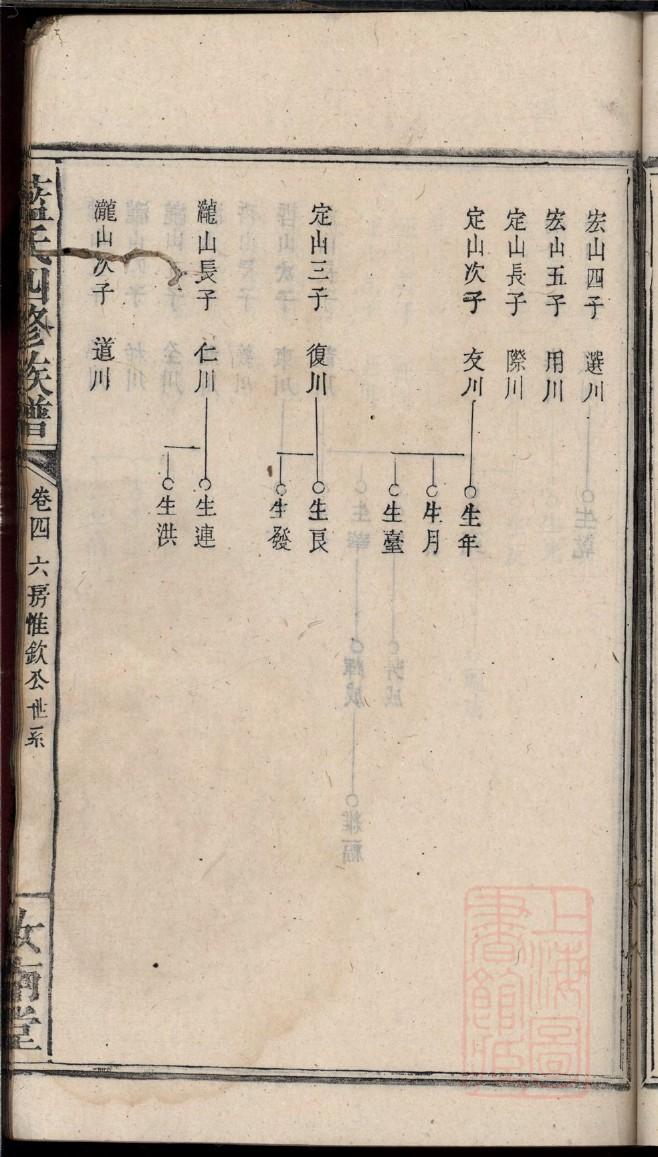 宏山四子 選川
宏山五子 用川
定山長子 際川
定山次子 交川
生年
生月
生臺
定山三子 復川
生良
生發
瀧山長子 仁川
生連
生洪
瀧山次子 道川
藍氏四修族譜
卷四 六房惟欽公世系
汝南堂
上海圖書館藏